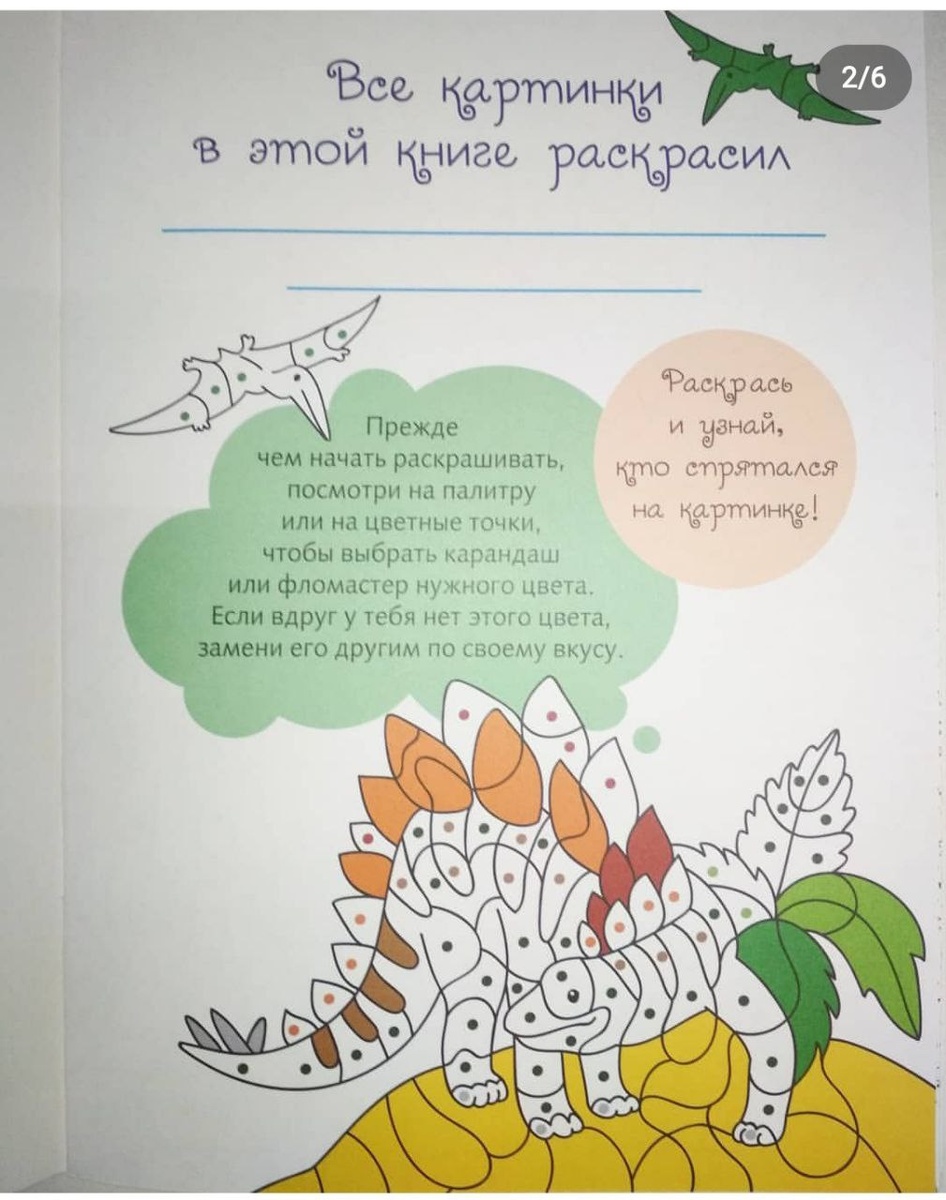 2/6
Все картинки
в этой книге раскрасил
Раскрась
и узнай,
кто спрятался
на картинке!
Прежде
чем начать раскрашивать,
посмотри на палитру
или на цветные точки,
чтобы выбрать карандаш
или фломастер нужного цвета.
Если вдруг у тебя нет этого цвета,
замени его другим по своему вкусу.